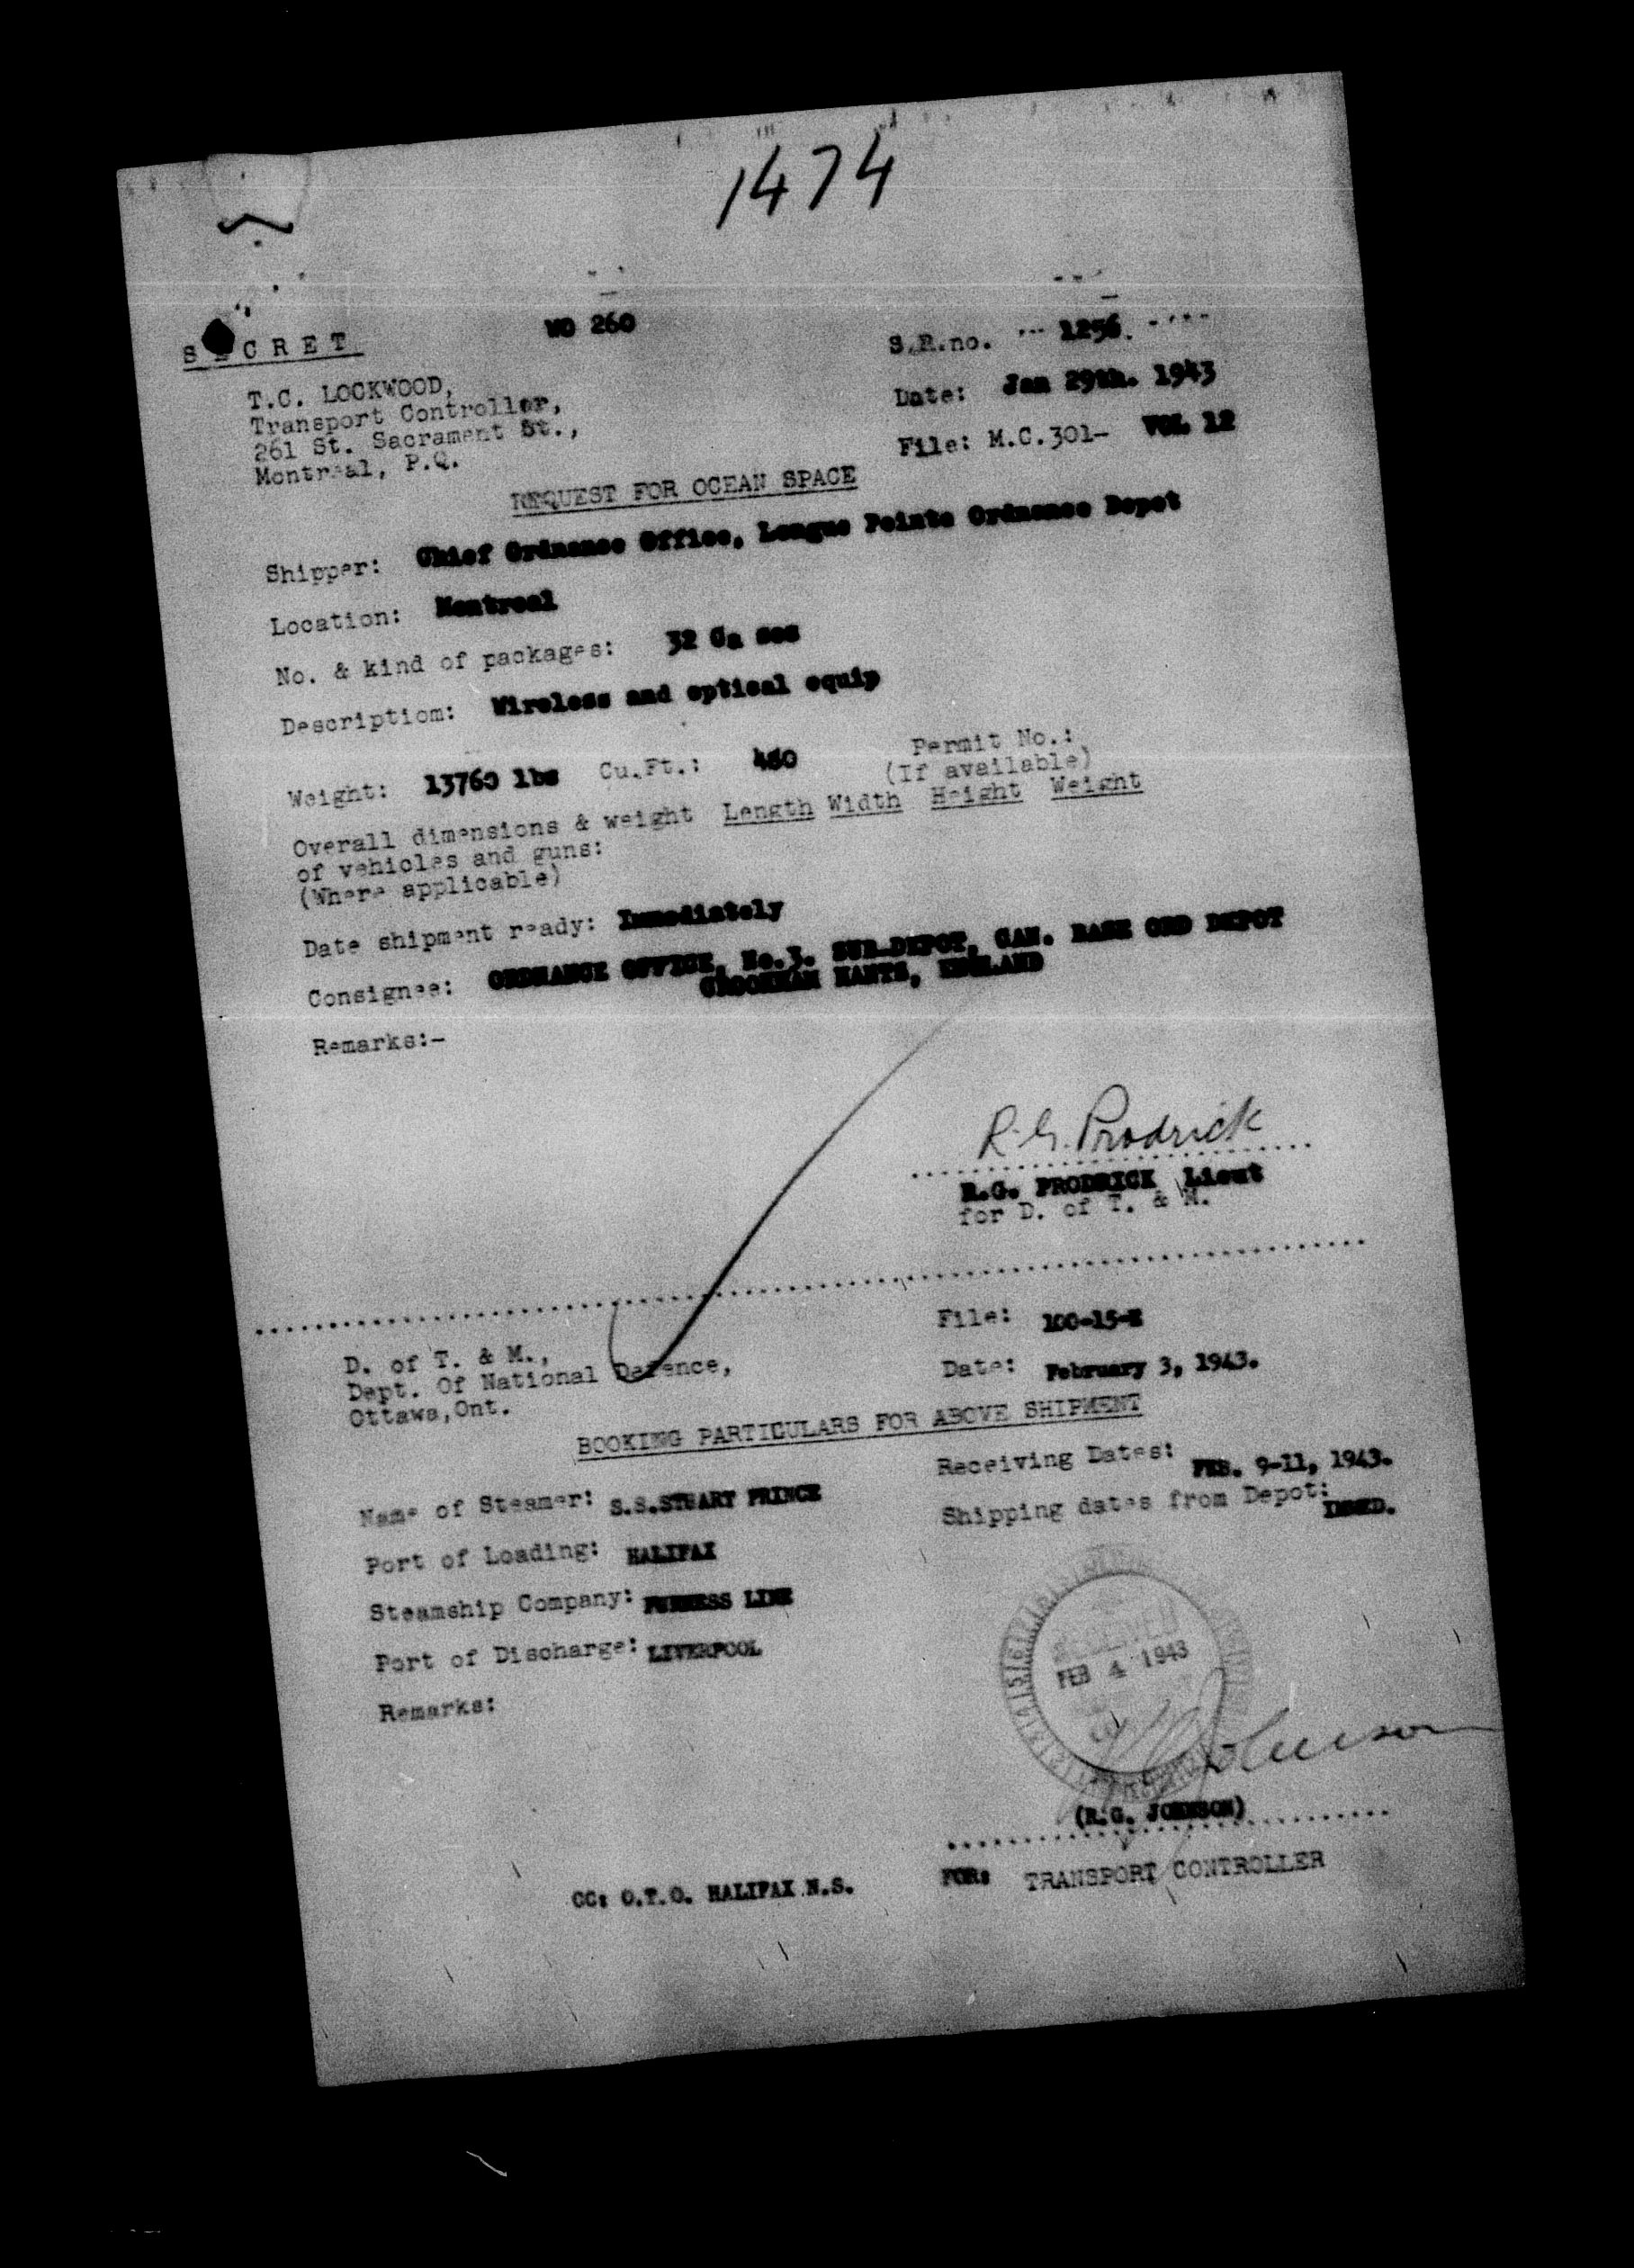 1474
SECRET
WO 260
S.R.no. 1256.
T.C. LOCKWOOD,
Transport Controller,
261 St. Sacrament St.,
Montreal, P.Q.
Date: Jan 29th. 1943
File: M.C.301- VOL. 12
REQUEST FOR OCEAN SPACE
Shipper: Chief Ordnance Office, Longue Pointe Ordnance Depot
Location: Montreal
No. & kind of packages: 32 Ca ses
Descriptiom: Wireless and optical equip
Weight: 13760 lbs Cu.Ft.: 480 Permit No.:
(If available)
Overall dimensions & weight Length Width Height Weight
of vehicles and guns:
(Where applicable)
Date shipment ready: Immediately
Consignee: ORDNANCE OFFICE, No.3. SUB-DEPOT, CAN. BASE ORD DEPOT
CROOKHAM HANTS, ENGLAND
Remarks:-
R.G. Prodrick
R.G. PRODRICK Lieut
for D. of T. & M.
D. of T. & M.,
Dept. Of National Defence,
Ottawa,Ont.
File: 100-15-E
Date: February 3, 1943.
BOOKING PARTICULARS FOR ABOVE SHIPMENT
Name of Steamer: S.S.STUART PRINCE
Receiving Dates: FEB. 9-11, 1943.
Port of Loading: HALIFAX
Shipping dates from Depot: IMMED.
Steamship Company: FURNESS LINE
Port of Discharge: LIVERPOOL
Remarks:
RECEIVED
FEB 4 1943
Johnson
(R.G. JOHNSON)
FOR: TRANSPORT CONTROLLER
CC: O.T.O. HALIFAX N.S.